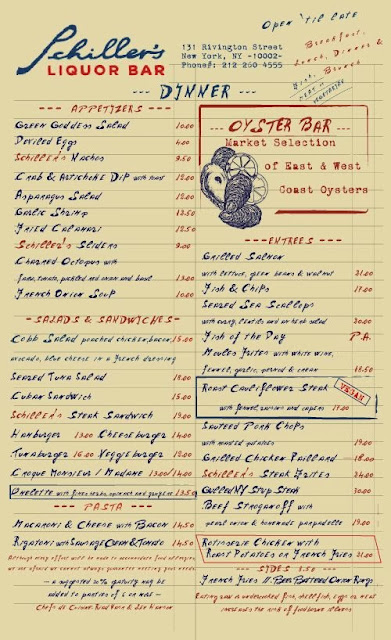 Schiller's
LIQUOR BAR
131 Rivington Street
New York, NY -10002-
Phone#: 212 260 4555
Open 'til Late
Breakfast,
Lunch, Dinner &
Brunch
--- DINNER ---
--- APPETIZERS ---
Green Goddess Salad 10.00
Deviled Eggs 6.00
Schiller's Nachos 9.50
Crab & Artichoke Dip with toast 12.00
Asparagus Salad 12.00
Garlic Shrimp 13.50
Fried Calamari 12.50
Schiller's Sliders 9.00
Charred Octopus with
Fava, tomato, pickled red onion and basil 13.00
French Onion Soup 10.00
- SALADS & SANDWICHES -
Cobb Salad poached chicken, bacon, 15.00
avocado, blue cheese in a French dressing
Seared Tuna Salad 18.00
Cuban Sandwich 15.00
Schiller's Steak Sandwich 19.00
Hamburger 13.00 Cheeseburger 14.00
Tunaburger 16.00 Veggieburger 12.00
Croque Monsieur / Madame 13.00/14.00
Omelette with fines herbes, 13.50
--- PASTA ---
Macaroni & Cheese with Bacon 14.50
Rigatoni with Sausage Cream & Tomato 14.50
Although every effort will be made to accommodate food allergies,
we are afraid we cannot always guarantee meeting your needs
- a suggested 20% gratuity may be
added to parties of 6 or more -
--- OYSTER BAR ---
Market Selection
of East & West
Coast Oysters
--- ENTREES ---
Grilled Salmon
with lettuce, green beans & walnut 21.00
Fish & Chips 17.00
Seared Sea Scallops
with curry, lentils and an herb salad 20.00
Fish of the Day P.A.
Moules Frites with white wine,
fennel, garlic, pernod & cream 18.50
Roast Cauliflower Steak VEGAN
with fennel, raisins and capers 17.00
Sauteed Pork Chops
with mashed potatoes 19.00
Grilled Chicken Paillard 18.00
Schiller's Steak Frites 24.00
Grilled NY Strip Steak 30.00
Beef Stroganoff with
pearl onion & homemade pappardelle 19.00
Rotisserie Chicken with
Roast Potatoes or French Fries 21.00
--- SIDES 7.50 ---
French Fries // Beer Battered Onion Rings
Eating raw or undercooked fish, shellfish, eggs or meat
increases the risk of foodborne illness